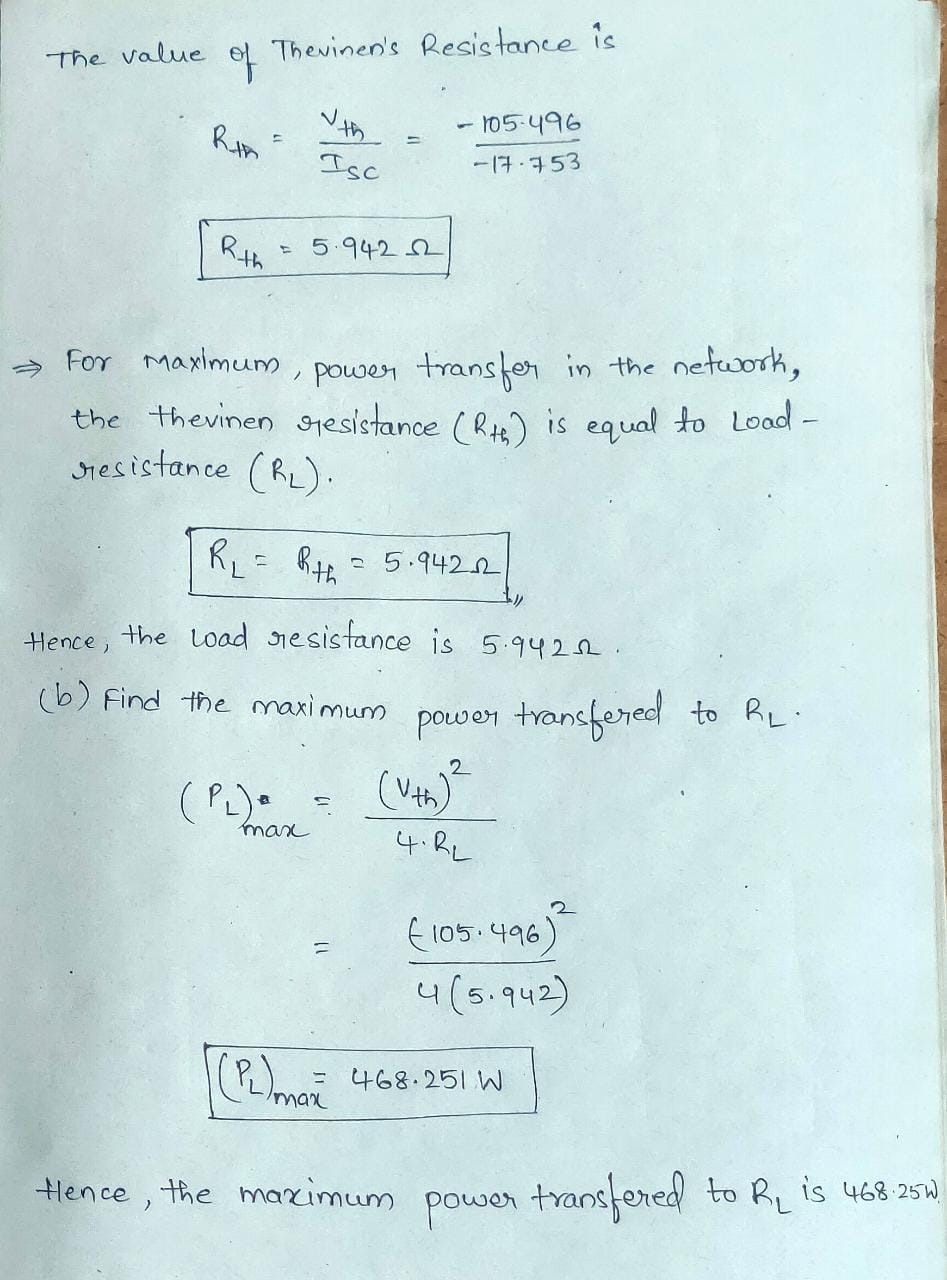 The value of Thevinen's Resistance is
R_th = V_th / I_SC = -105.496 / -17.753
R_th = 5.942 Ω
⇒ For maximum, power transfer in the network,
the thevinen resistance (R_th) is equal to Load -
resistance (R_L).
R_L = R_th = 5.942 Ω
Hence, the load resistance is 5.942 Ω.
(b) Find the maximum power transfered to R_L.
(P_L)max = (V_th)² / 4.R_L
= (-105.496)² / 4(5.942)
(P_L)max = 468.251 W
Hence, the maximum power transfered to R_L is 468.25W